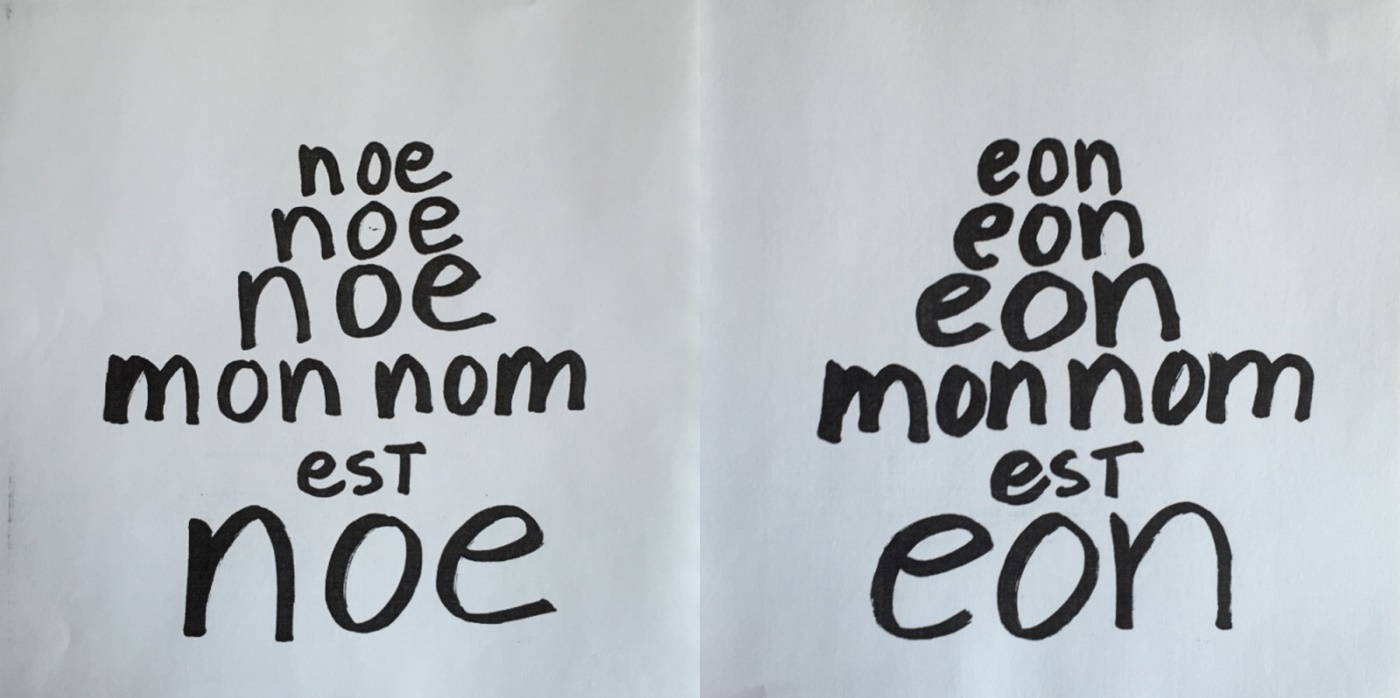 noe
noe
noe
mon nom
esT
noe
eon
eon
eon
mon nom
esT
eon